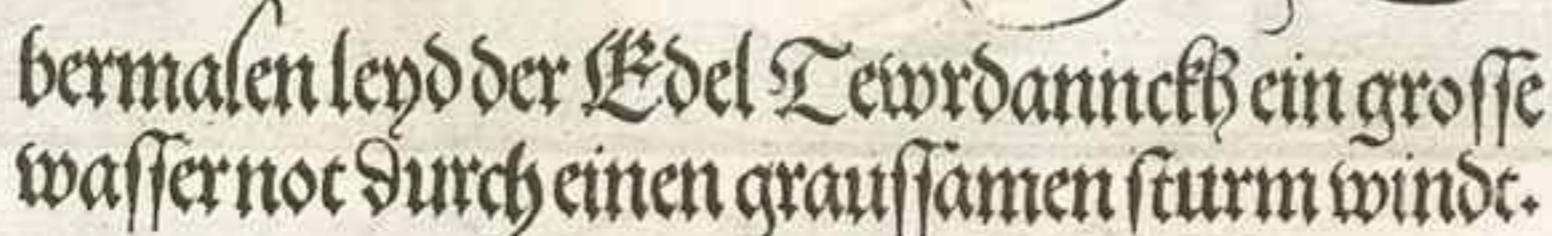 bermalen leyd der Edel Tewrdannckh ein grosse
wasser not durch einen graussamen sturm windt.